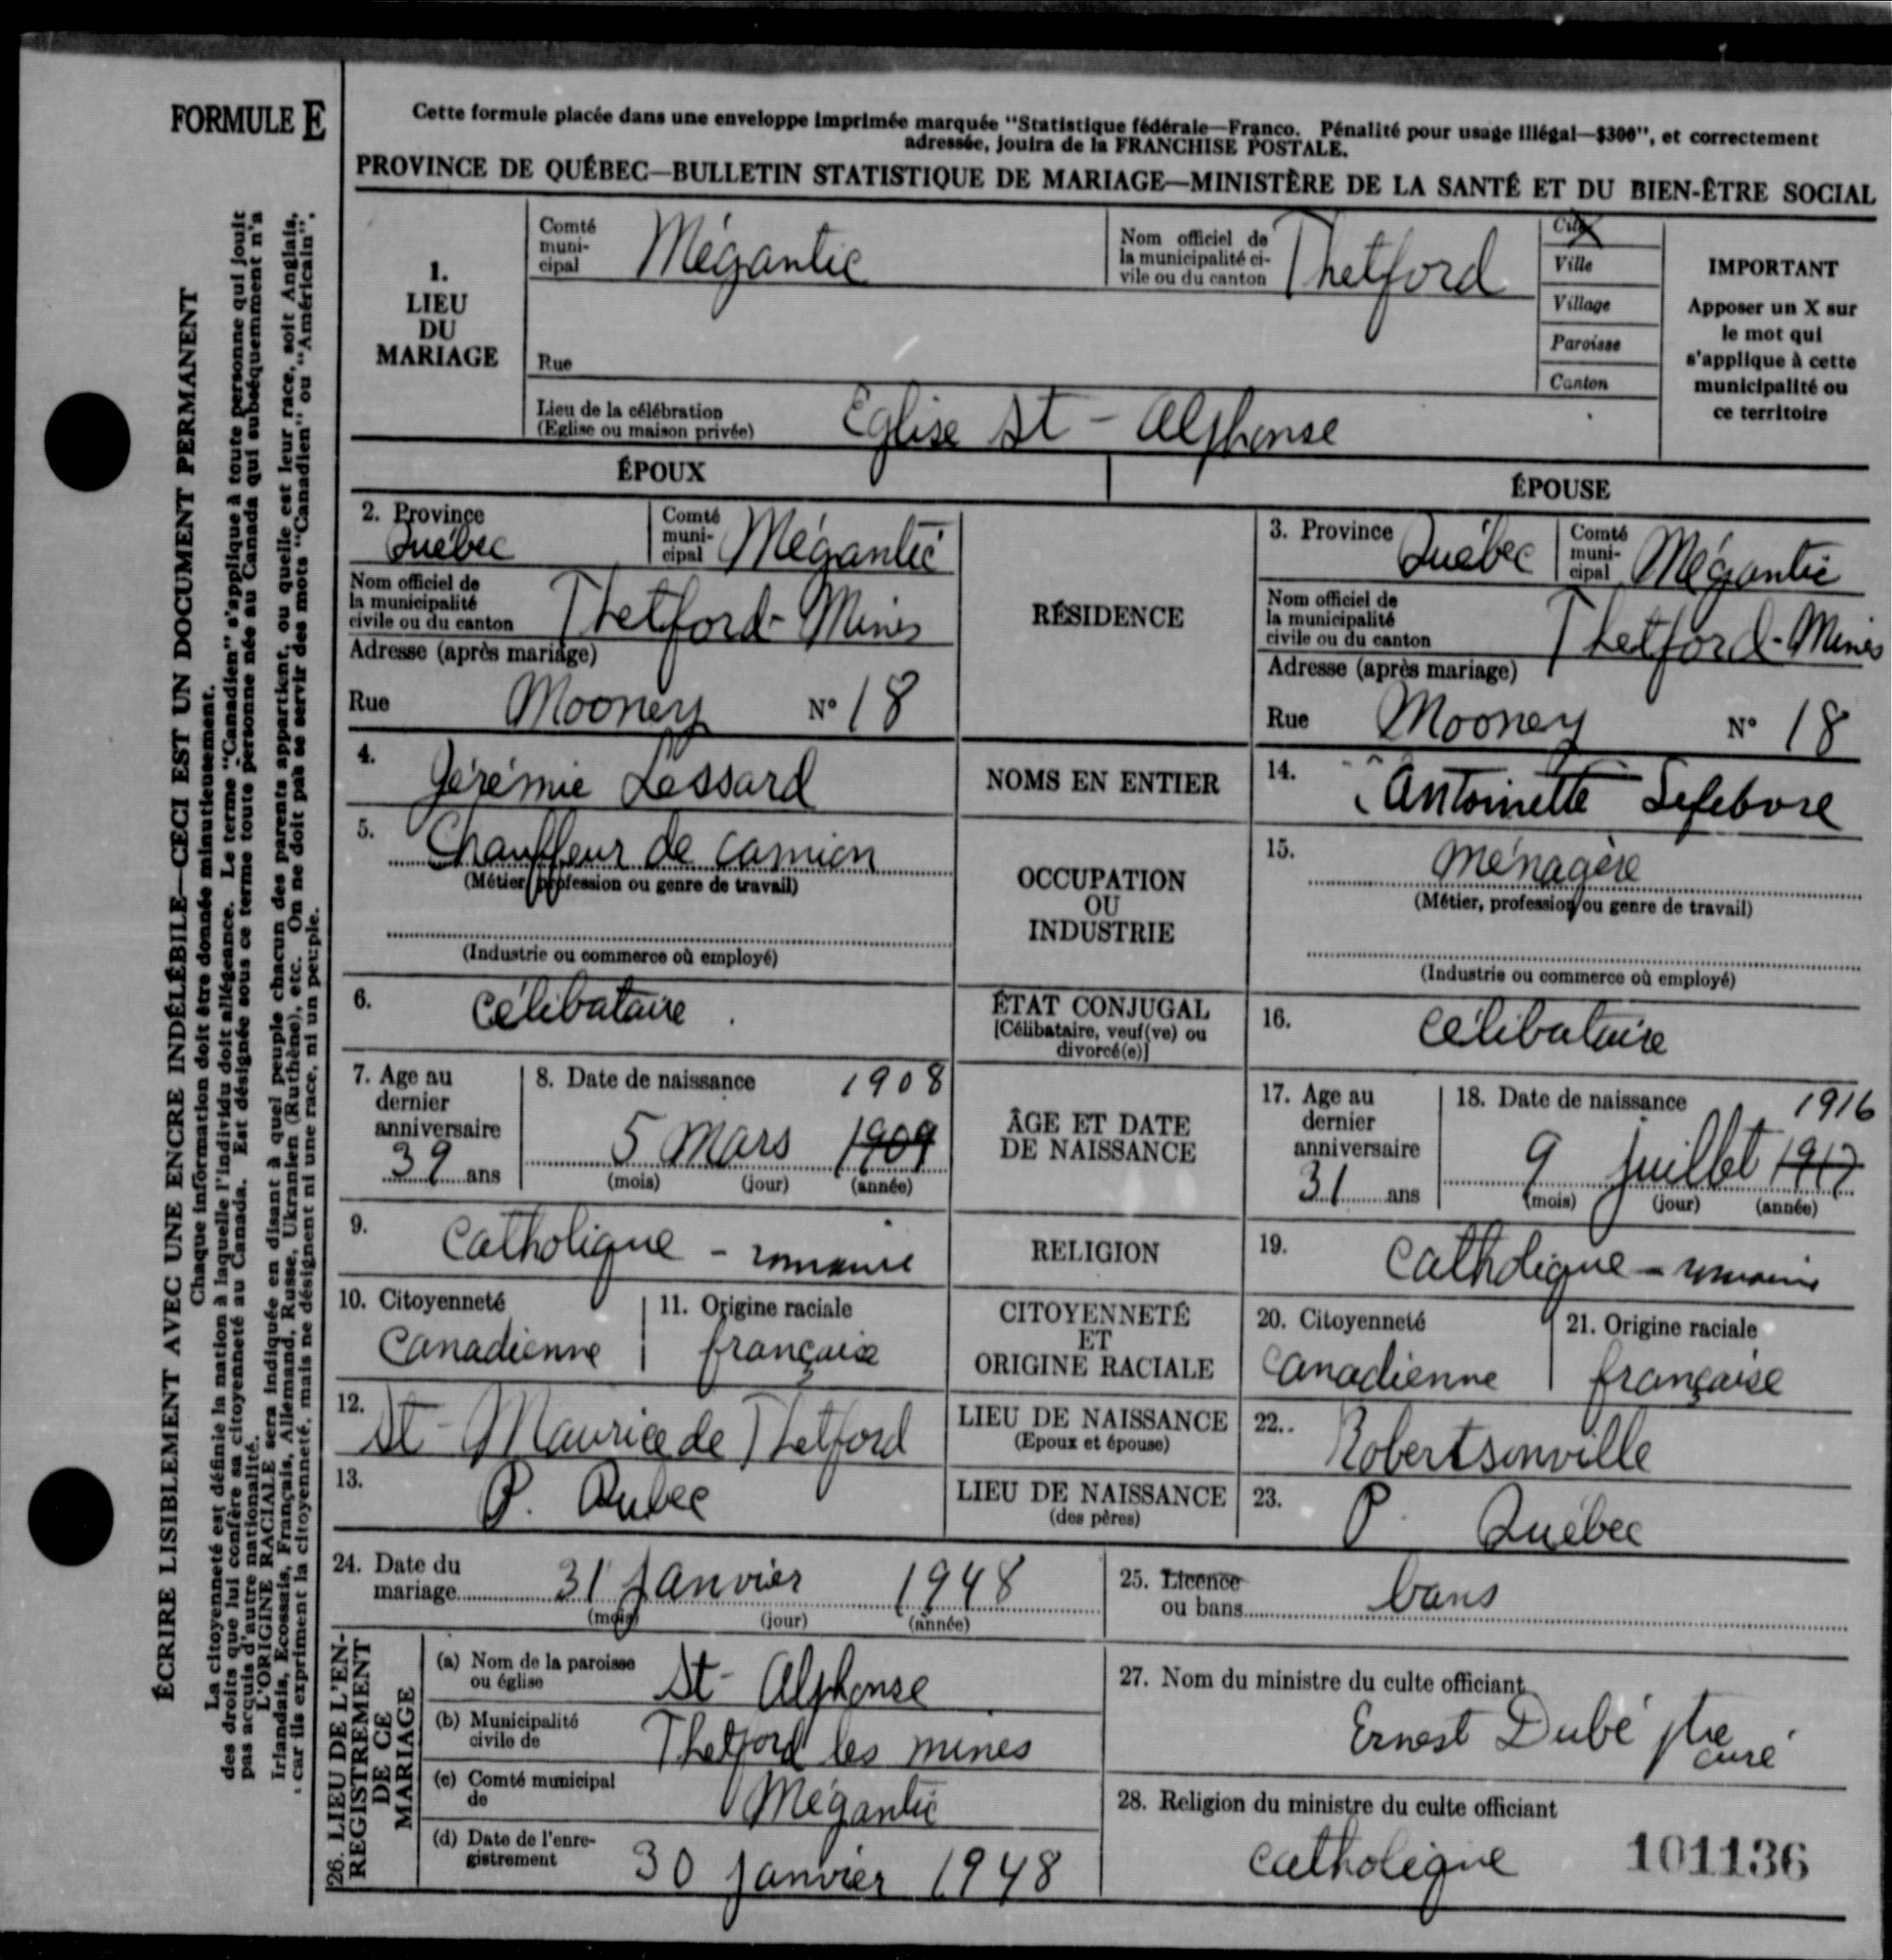 FORMULE E
Cette formule placée dans une enveloppe imprimée marquée "Statistique fédérale—Franco. Pénalité pour usage illégal—$300", et correctement
adressée, jouira de la FRANCHISE POSTALE.
PROVINCE DE QUÉBEC—BULLETIN STATISTIQUE DE MARIAGE—MINISTÈRE DE LA SANTÉ ET DU BIEN-ÊTRE SOCIAL
ÉCRIRE LISIBLEMENT AVEC UNE ENCRE INDÉLÉBILE—CECI EST UN DOCUMENT PERMANENT
Chaque information doit être donnée minutieusement.
La citoyenneté est définie la nation à laquelle l'individu doit allégeance. Le terme "Canadien" s'applique à toute personne qui jouit
des droits que lui confère sa citoyenneté au Canada. Est désignée sous ce terme toute personne née au Canada qui subséquemment n'a
pas acquis d'autre nationalité.
L'ORIGINE RACIALE sera indiquée en disant à quel peuple chacun des parents appartient, ou quelle est leur race, soit Anglais,
Irlandais, Ecossais, Français, Allemand, Russe, Ukranien (Ruthène), etc. On ne doit pas se servir des mots "Canadien" ou "Américain",
car ils expriment la citoyenneté, mais ne désignent ni une race, ni un peuple.
1.
LIEU
DU
MARIAGE
Comté
muni-
cipal Mégantic
Nom officiel de
la municipalité ci-
vile ou du canton Thetford
Cité
Ville
Village
Paroisse
Canton
IMPORTANT
Apposer un X sur
le mot qui
s'applique à cette
municipalité ou
ce territoire
Rue
Lieu de la célébration
(Eglise ou maison privée) Eglise St - Alphonse
ÉPOUX
ÉPOUSE
2. Province
Québec
Comté
muni-
cipal Mégantic
RÉSIDENCE
3. Province Québec
Comté
muni-
cipal Mégantic
Nom officiel de
la municipalité
civile ou du canton Thetford-Mines
Nom officiel de
la municipalité
civile ou du canton Thetford-Mines
Adresse (après mariage)
Rue Mooney N° 18
Adresse (après mariage)
Rue Mooney N° 18
4. Jérémie Lessard
NOMS EN ENTIER
14. Antoinette Lefebvre
5. Chauffeur de camion
(Métier, profession ou genre de travail)
(Industrie ou commerce où employé)
OCCUPATION
OU
INDUSTRIE
15. Ménagère
(Métier, profession ou genre de travail)
(Industrie ou commerce où employé)
6. célibataire
ÉTAT CONJUGAL
[Célibataire, veuf(ve) ou
divorcé(e)]
16. célibataire
7. Age au
dernier
anniversaire
39 ans
8. Date de naissance 1908
5 Mars 1909
(mois) (jour) (année)
ÂGE ET DATE
DE NAISSANCE
17. Age au
dernier
anniversaire
31 ans
18. Date de naissance 1916
9 juillet 1917
(mois) (jour) (année)
9. Catholique - romaine
RELIGION
19. Catholique - romaine
10. Citoyenneté
Canadienne
11. Origine raciale
française
CITOYENNETÉ
ET
ORIGINE RACIALE
20. Citoyenneté
Canadienne
21. Origine raciale
française
12. St-Maurice de Thetford
LIEU DE NAISSANCE
(Epoux et épouse)
22. Robertsonville
13. P. Quebec
LIEU DE NAISSANCE
(des pères)
23. P. Québec
24. Date du
mariage 31 Janvier 1948
(mois) (jour) (année)
25. Licence
ou bans bans
26. LIEU DE L'EN-
REGISTREMENT
DE CE
MARIAGE
(a) Nom de la paroisse
ou église St-Alphonse
(b) Municipalité
civile de Thetford les mines
(c) Comté municipal
de Mégantic
(d) Date de l'enre-
gistrement 30 Janvier 1948
27. Nom du ministre du culte officiant
Ernest Dubé ptre
curé
28. Religion du ministre du culte officiant
catholique
101136